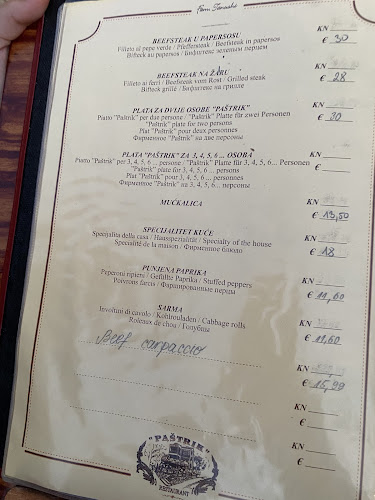 BEEFSTEAK U PAPERSOSU KN
Filleto al pepe verde / Pfeffersteak / Beefsteak in papersos € 30
Bifteck au papersos / Бифштекс зеленым перцем
BEEFSTEAK NA ŽARU KN
Filleto ai ferri / Beefsteak vom Rost / Grilled steak € 28
Bifteck grillé / Бифштекс на грилле
PLATA ZA DVIJE OSOBE "PAŠTRIK" KN
Piatto "Paštrik" per due persone / "Paštrik" Platte für zwei Personen € 30
"Paštrik" plate for two persons
Plat "Paštrik" pour deux personnes
Фирменное "Paštrik" на две персоны
PLATA "PAŠTRIK" ZA 3, 4, 5, 6 ... OSOBA KN
Piatto "Paštrik" per 3, 4, 5, 6 ... persone / "Paštrik" Platte für 3, 4, 5, 6... Personen €
"Paštrik" plate for 3, 4, 5, 6 ... persons
Plat "Paštrik" pour 3, 4, 5, 6 ... personnes
Фирменное "Paštrik" на 3, 4, 5, 6 ... персоны
MUĆKALICA KN
€ 13,50
SPECIJALITET KUĆE KN
Specijalita della casa / Hausspezialität / Specialty of the house € 18
Specialité de la maison / Фирменное блюдо
PUNJENA PAPRIKA KN
Peperoni ripieni / Gefüllte Paprika / Stuffed peppers € 11,60
Poivrons farcis / Фаршированные перцы
SARMA KN
Involtini di cavolo / Kohlrouladen / Cabbage rolls € 11,60
Roleaux de chou / Голубцы
Beef carpaccio KN
€ 15,99
KN
€
KN
€
"PAŠTRIK"
RESTAURANT